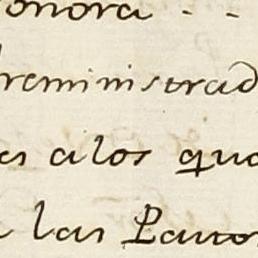 onora . .
reministrad
es alos qua
las Pauto